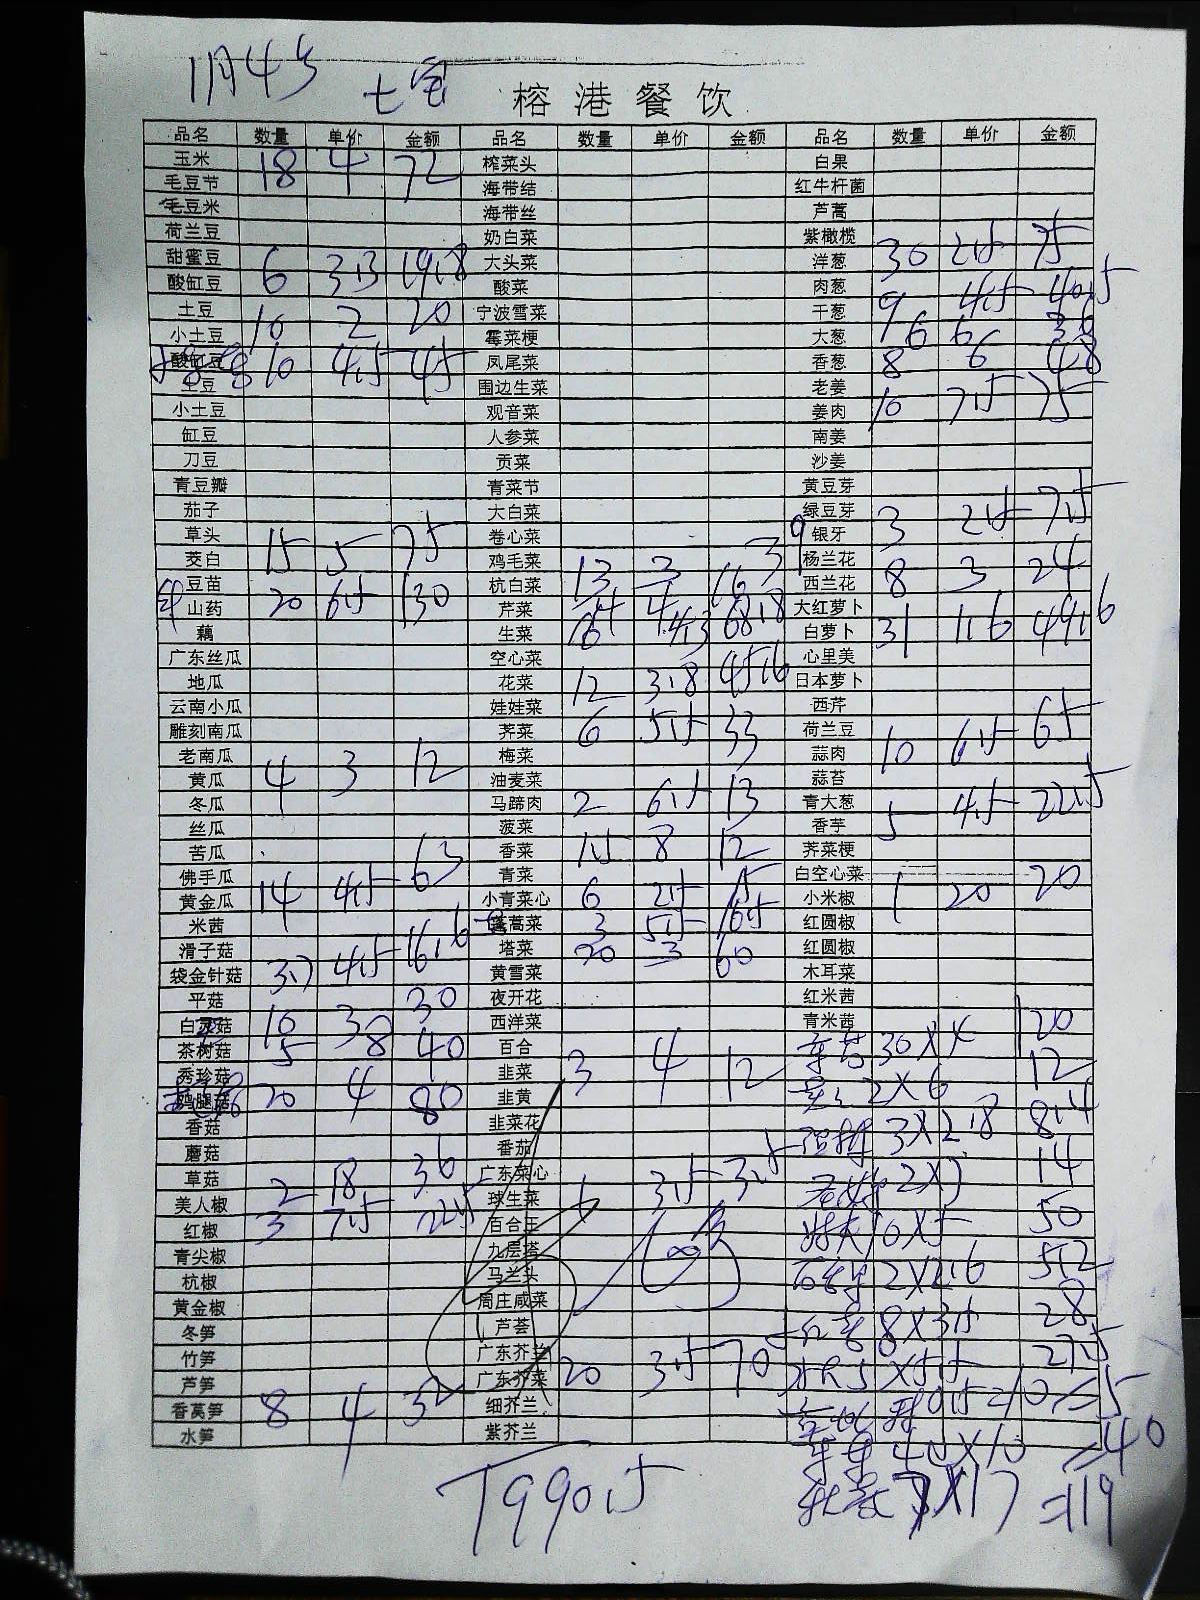 11月4号 七宝
榕港餐饮
品名 数量 单价 金额 品名 数量 单价 金额 品名 数量 单价 金额
玉米 18 4 72 榨菜头 白果
毛豆节 海带结 红牛杆菌
毛豆米 海带丝 芦蒿
荷兰豆 奶白菜 紫橄榄
甜蜜豆 6 3.3 19.8 大头菜 洋葱 30 2.5 75
酸缸豆 酸菜 肉葱
土豆 10 2 20 宁波雪菜 干葱 9 4.5 40.5
小土豆 霉菜梗 大葱 6 6 36
酸缸豆 10 4.5 45 凤尾菜 香葱 8 6 48
土豆 围边生菜 老姜
小土豆 观音菜 姜肉 10 7.5 75
缸豆 人参菜 南姜
刀豆 贡菜 沙姜
青豆瓣 青菜节 黄豆芽
茄子 大白菜 绿豆芽 3 2.5 7.5
草头 15 5 75 卷心菜 银牙
茭白 鸡毛菜 13 3 39 杨兰花
豆苗 杭白菜 西兰花 8 3 24
山药 20 6.5 130 芹菜 4 4 16 大红萝卜
藕 生菜 16 4.3 68.8 白萝卜 31 1.6 49.6
广东丝瓜 空心菜 心里美
地瓜 花菜 12 3.8 45.6 日本萝卜
云南小瓜 娃娃菜 西芹
雕刻南瓜 荠菜 6 5.5 33 荷兰豆
老南瓜 梅菜 蒜肉 10 6.5 65
黄瓜 4 3 12 油麦菜 蒜苔
冬瓜 马蹄肉 2 6.5 13 青大葱
丝瓜 菠菜 香芋 5 4.5 22.5
苦瓜 香菜 1.5 8 12 荠菜梗
佛手瓜 青菜 白空心菜
黄金瓜 14 4.5 63 小青菜心 6 2.5 15 小米椒 1 20 20
米茜 蓬蒿菜 3 5.5 16.5 红圆椒
滑子菇 塔菜 20 3 60 红圆椒
袋金针菇 3.7 4.5 16.6 黄雪菜 木耳菜
平菇 夜开花 红米茜
白灵菇 10 3 30 西洋菜 青米茜
茶树菇 5 8 40 百合 30×4 120
秀珍菇 韭菜 3 4 12 2×6 12
鸡腿菇 20 4 80 韭黄
香菇 韭菜花 3×2.8 8.4
蘑菇 番茄
草菇 2 18 36 广东菜心 2×7 14
美人椒 球生菜 1 3.5 3.5
红椒 3 7.5 22.5 百合王 10×5 50
青尖椒 九层塔
杭椒 马兰头 2×2.6 5.2
黄金椒 周庄咸菜
冬笋 芦荟 8×3.5 28
竹笋 广东芥兰
芦笋 广东芥菜 20 3.5 70 5×5.5 27.5
香莴笋 8 4 32 细芥兰 0.5×10=5
水笋 紫芥兰 40
1990.5 7×17=119